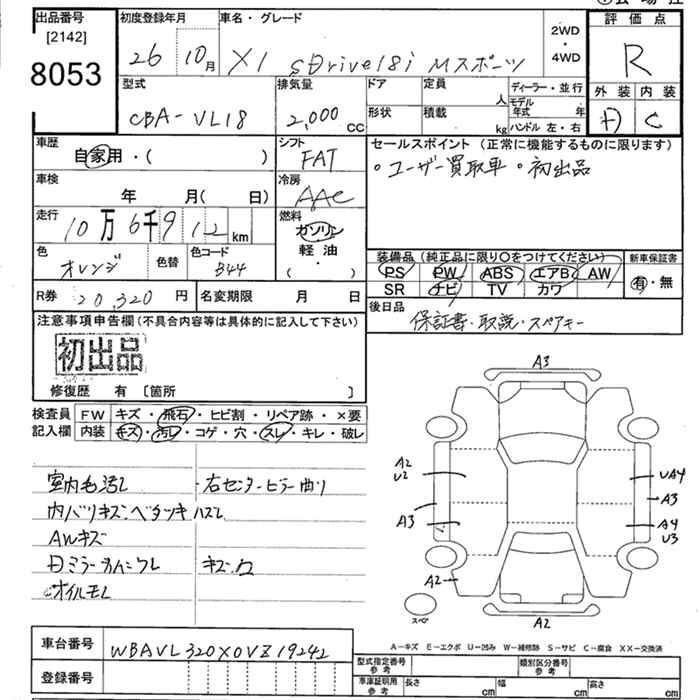 出品番号
[2142]
8053
初度登録年月
26 10月
車名・グレード
X1 sDrive18i Mスポーツ
2WD
・
4WD
評価点
R
外装 内装
D C
型式
CBA-VL18
排気量
2,000 CC
ドア
形状
定員
人
積載
kg
ディーラー・並行
モデル
年式 年
ハンドル 左・右
車歴
自家用・( )
シフト
FAT
セールスポイント (正常に機能するものに限ります)
・ユーザー買取車 ・初出品
車検
年 月( 日)
冷房
AAC
走行
10万6千912 km
燃料
ガソリン
軽油
・( )
色
オレンジ
色替
色コード
B44
装備品 (純正品に限り○をつけてください)
PS PW ABS エアB AW
SR ナビ TV カワ
新車保証書
有・無
R券 20,320 円
名変期限 月 日
後日品
保証書・取説・スペアキー
注意事項申告欄(不具合内容等は具体的に記入して下さい)
初出品
修復歴 有 〔箇所 〕
検査員
記入欄
FW キズ・飛石・ヒビ割・リペア跡・×要
内装 キズ・汚レ・コゲ・穴・スレ・キレ・破レ
室内毛汚レ
・右センターピラー曲り
内バリキズ・ベタツキ ハズレ
AWキズ
キズ・
オイルモレ
A3
A2
U2
A3
A2
UA4
A3
A4
U3
A2
スペア
車台番号
WBAVL320X0VZ19242
登録番号
A-キズ E-エクボ U-凹み W-補修跡 S-サビ C-腐食 XX-交換済
型式指定番号
参考
類別区分番号
参考
車庫証明用
参考
長さ cm
幅 cm
高さ cm